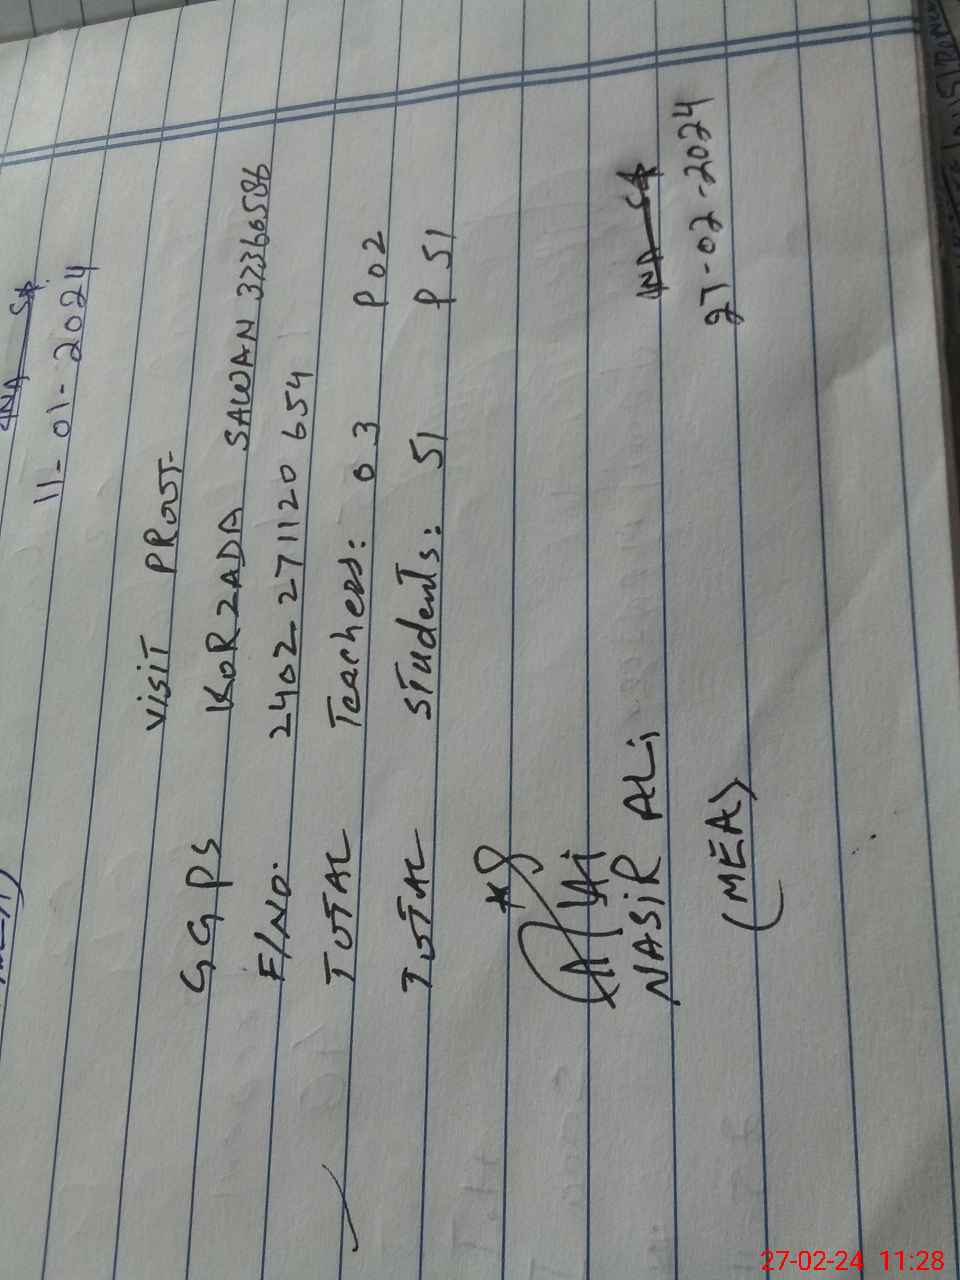 11-01-2024
VISIT PROOF
GGPS KORZADA SAWAN 37360586
F/NO. 2402271120654
TOTAL Teachers: 03 P 02
TOTAL STudents: 51 P 51
NASIR ALi
(MEA) 27-02-2024
27-02-24 11:28